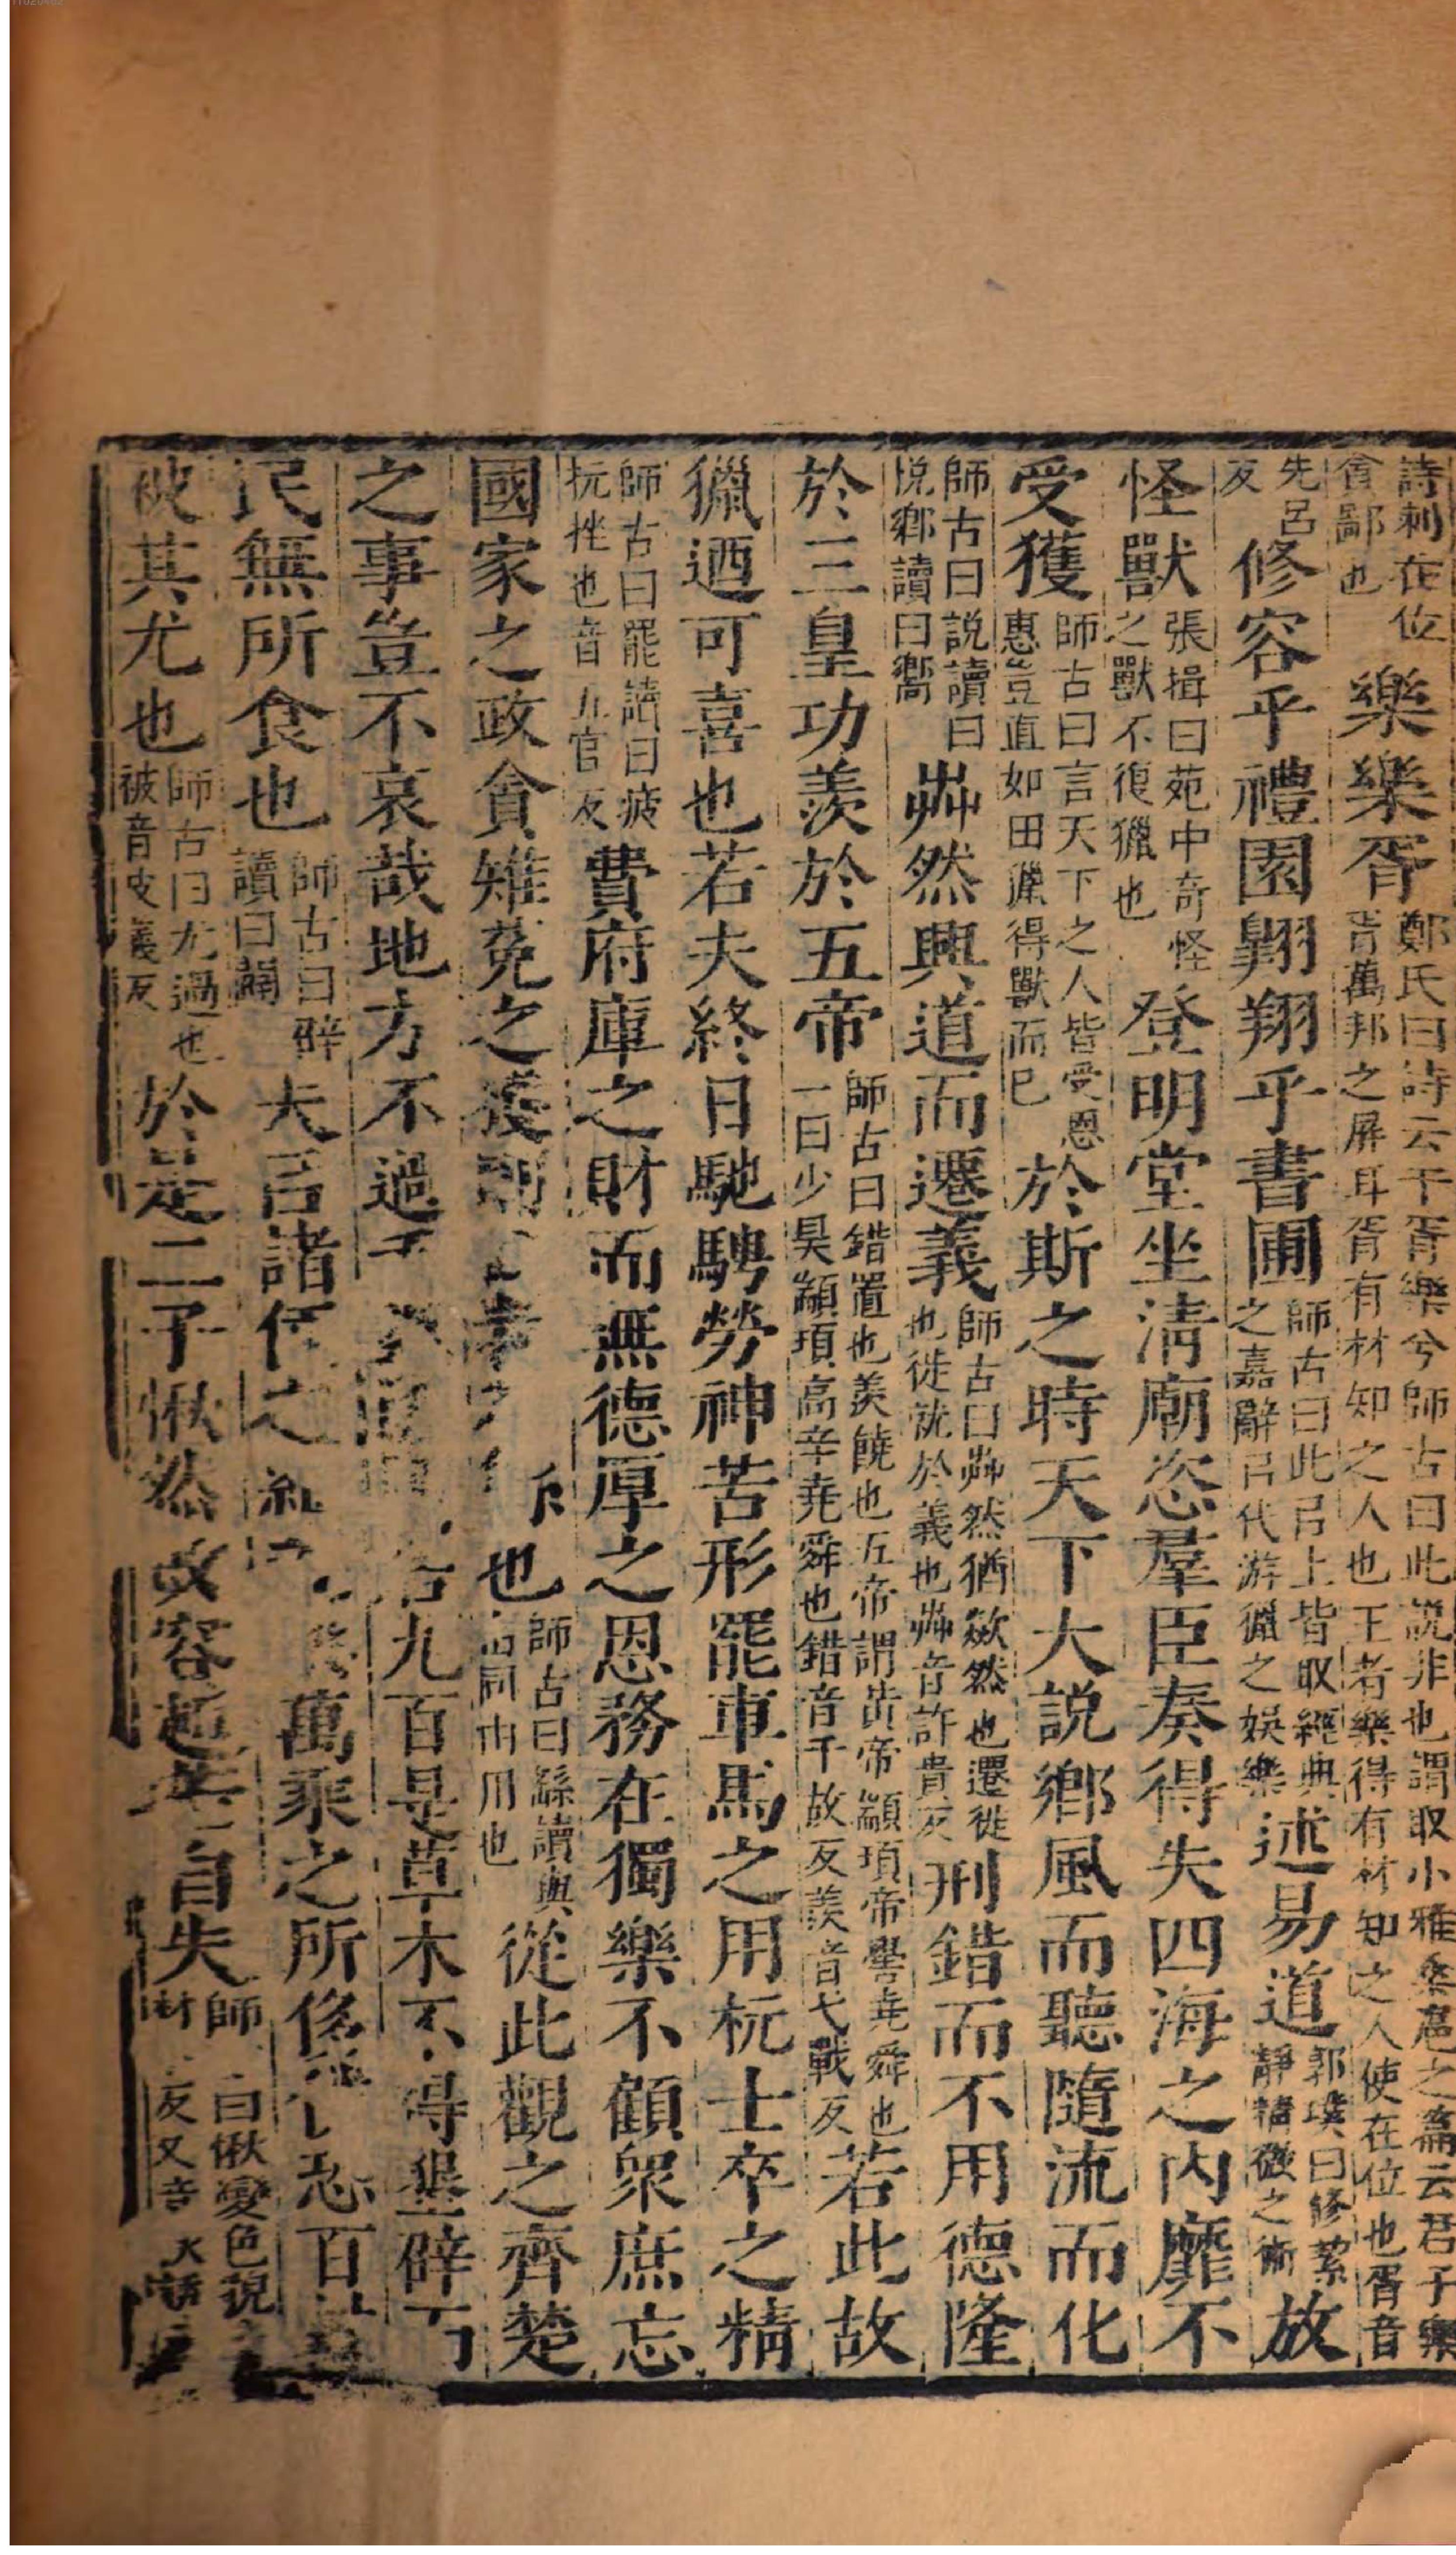 詩刺在位貪鄙也樂樂胥鄭氏曰詩云于胥樂兮師古曰此說非也謂取小雅桑扈之篇云君子樂胥萬邦之屏耳胥有材知之人也王者樂得有材知之人使在位也胥音
先呂反修容乎禮園翺翔乎書圃師古曰此㠯上皆取經典之嘉辭㠯代游獵之娛樂述易道郭璞曰修絜靜精微之術放
怪獸張揖曰苑中奇怪之獸不復獵也登明堂坐淸廟恣羣臣奏得失四海之內靡不
受獲師古曰言天下之人皆受恩惠豈直如田獵得獸而已於斯之時天下大說鄉風而聽隨流而化
師古曰說讀曰悅鄉讀曰嚮芔然興道而遷義師古曰芔然猶欻然也遷徙也徙就於義也芔音許貴反刑錯而不用德隆
於三皇功羨於五帝師古曰錯置也羨饒也五帝謂黃帝顓頊帝嚳堯舜也一曰少昊顓頊高辛堯舜也錯音千故反羨音弋戰反若此故
獵迺可喜也若夫終日馳騁勞神苦形罷車馬之用抏士卒之精
師古曰罷讀曰疲抏挫也音五官反費府庫之財而無德厚之恩務在獨樂不顧衆庶忘
國家之政貪雉菟之獲則也師古曰繇讀與由同由用也從此觀之齊楚
之事豈不哀哉地方不過千九百是草木不得墾辟
民無所食也師古曰辟讀曰闢夫㠯諸侯之萬乘之所侈恐百
被其尤也師古曰尤過也被音皮義反於是二子愀然改容超若自失師曰愀變色貌反又音